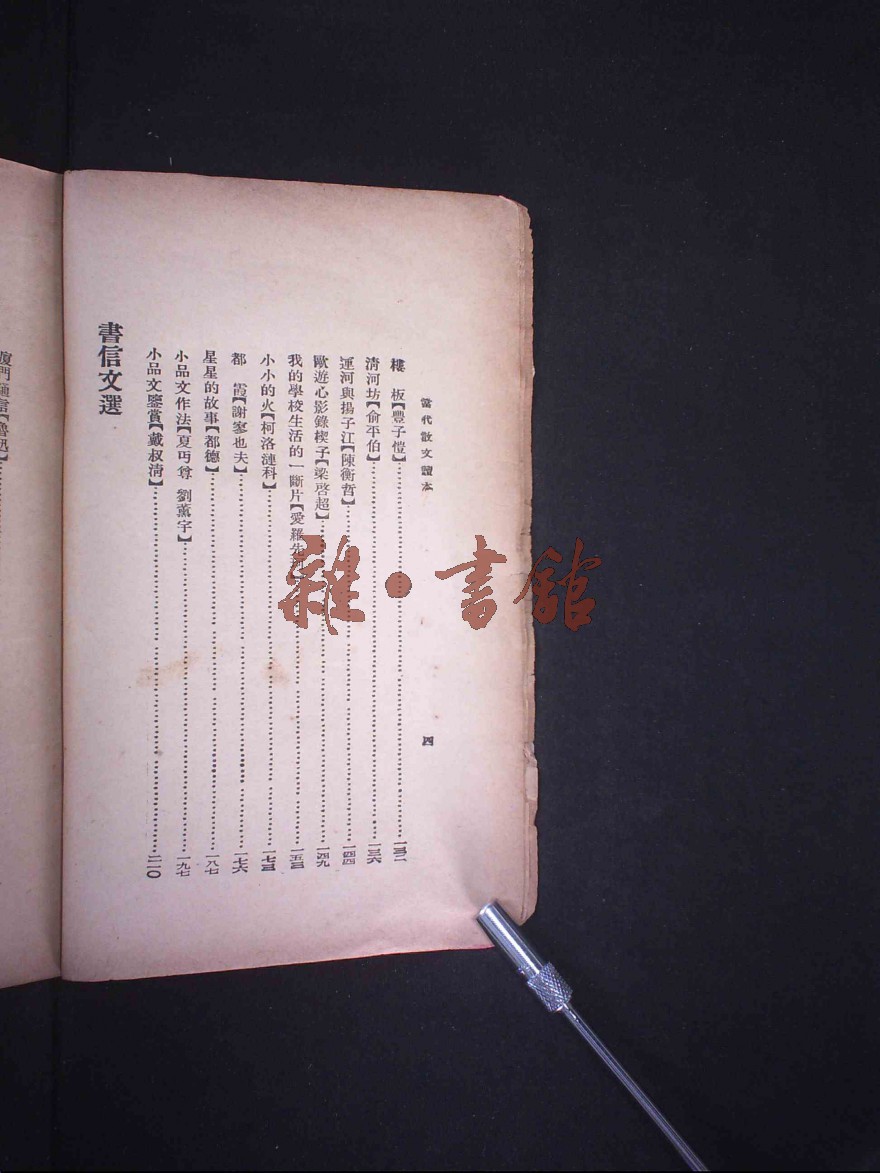 當代散文讀本
四
樓　板【豐子愷】…………一三二
清河坊【俞平伯】…………一三六
運河與揚子江【陳衡哲】…………一四四
歐遊心影錄楔子【梁啓超】…………一四九
我的學校生活的一斷片【愛羅先珂】…………一五三
小小的火【柯洛漣科】…………一七三
都　霞【謝寥也夫】…………一七六
星星的故事【都德】…………一八七
小品文作法【夏丏尊 劉薰宇】…………一九七
小品文鑒賞【戴叔清】…………二一〇
書信文選
廈門通信【魯迅】…………
雜·書館